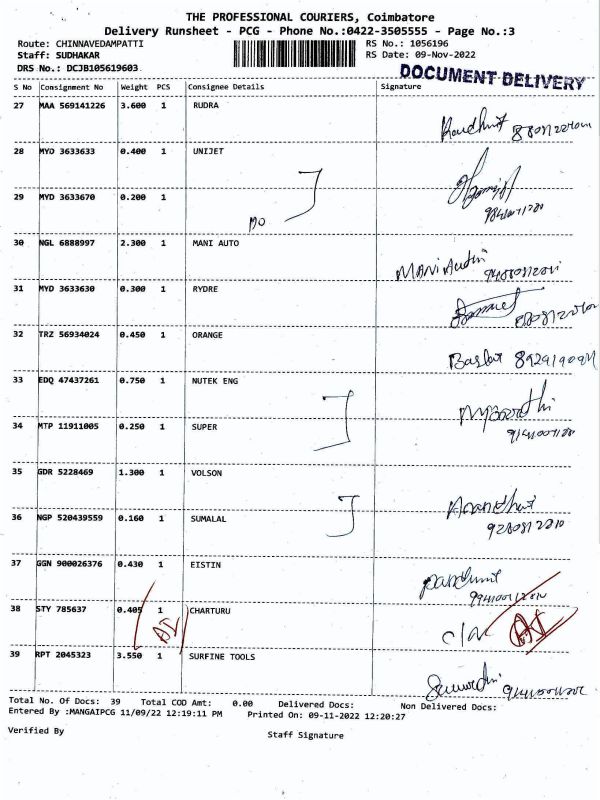 THE PROFESSIONAL COURIERS, Coimbatore
Delivery Runsheet - PCG - Phone No.:0422-3505555 - Page No.:3
Route: CHINNAVEDAMPATTI RS No.: 1056196
Staff: SUDHAKAR RS Date: 09-Nov-2022
DRS No.: DCJB105619603
DOCUMENT DELIVERY
S No Consignment No Weight PCS Consignee Details Signature
27 MAA 569141226 3.600 1 RUDRA
28 MYD 3633633 0.400 1 UNIJET
29 MYD 3633670 0.200 1
30 NGL 6888997 2.300 1 MANI AUTO
31 MYD 3633630 0.300 1 RYDRE
32 TRZ 56934024 0.450 1 ORANGE
33 EDQ 47437261 0.750 1 NUTEK ENG
34 MTP 11911005 0.250 1 SUPER
35 GDR 5228469 1.300 1 VOLSON
36 NGP 520439559 0.160 1 SUMALAL
37 GGN 900026376 0.430 1 EISTIN
38 STY 785637 0.405 1 CHARTURU
39 RPT 2045323 3.550 1 SURFINE TOOLS
Total No. Of Docs: 39 Total COD Amt: 0.00 Delivered Docs: Non Delivered Docs:
Entered By :MANGAIPCG 11/09/22 12:19:11 PM Printed On: 09-11-2022 12:20:27
Verified By Staff Signature